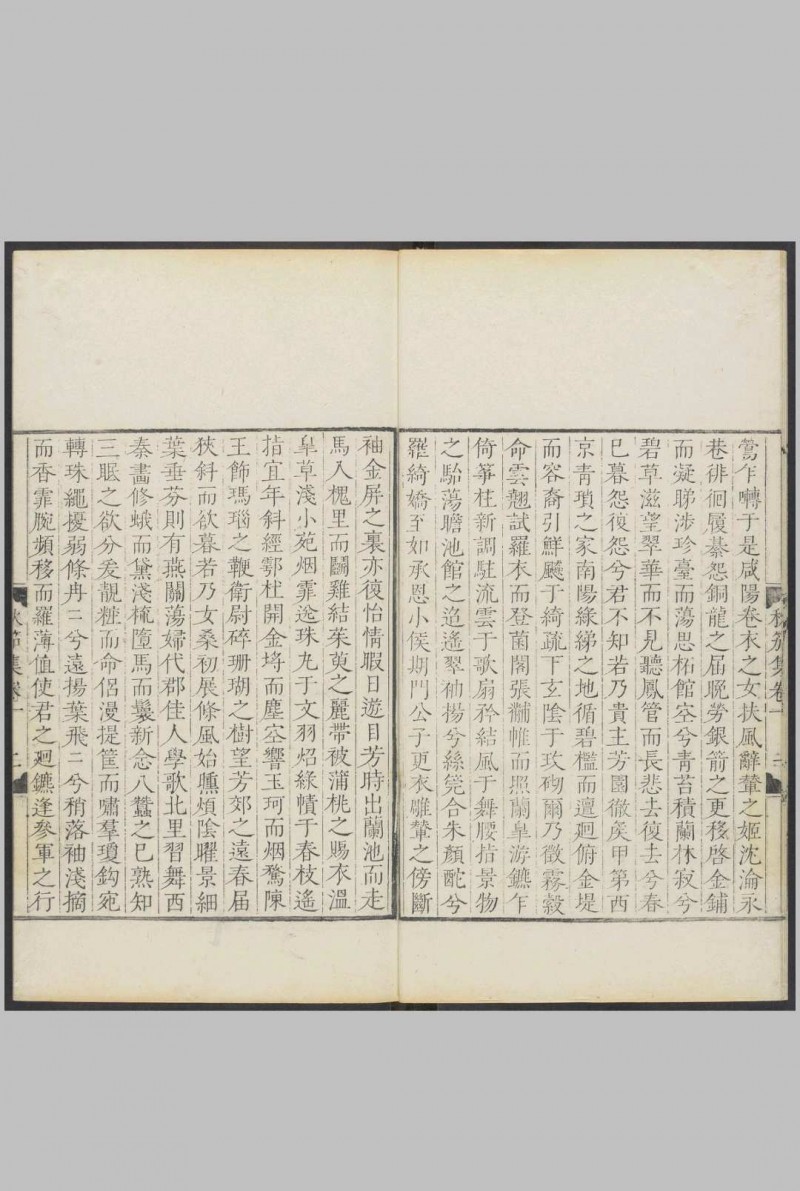 鶯乍囀于是咸陽卷衣之女扶風辭輦之姬沈淪永
巷徘徊履綦怨銅龍之届晚勞銀箭之更移啓金鋪
而凝睇涉珍臺而蕩思柘館空兮青苔積蘭林寂兮
碧草滋望翠華而不見聽鳳管而長悲去復去兮春
已暮怨復怨兮君不知若乃貴主芳園徹矦甲第西
京青瑣之家南陽綠綈之地循碧檻而邅廻俯金堤
而容裔引鮮飈于綺疏下玄陰于玫砌爾乃徵霧縠
命雲翹試羅衣而登菌閣張黼帷而照蘭皐游鑣乍
倚箏柱新調駐流雲于歌扇矜結風于舞腰指景物
之駘蕩瞻池館之迢遙翠袖揚兮絲筦合朱顏酡兮
羅綺嬌至如承恩小侯期門公子更衣雕輦之傍斷
袖金屏之裏亦復怡情暇日遊目芳時出蘭池而走
馬入槐里而鬭雞結茱萸之麗帶被蒲桃之賜衣溫
皐草淺小苑烟霏迯珠丸于文羽炤綠幘于春枝遙
指宜年斜經鄠杜開金埓而塵空響玉珂而烟騖陳
王飾瑪瑙之鞭衛尉碎珊瑚之樹望芳郊之遠春届
狹斜而欲暮若乃女桑初展條風始燻煩陰曜景細
葉垂芬則有燕關蕩婦代郡佳人學歌北里習舞西
秦畵修蛾而黛淺梳墮馬而鬟新念八蠶之已熟知
三眠之欲分爰靚粧而命侶漫提筐而嘯羣瓊鈎宛
轉珠繩擾弱條冉〻兮遠揚葉飛〻兮稍落袖淺摘
而香霏腕頻移而羅薄值使君之廻鑣逢參軍之行
秋笳集卷一
二